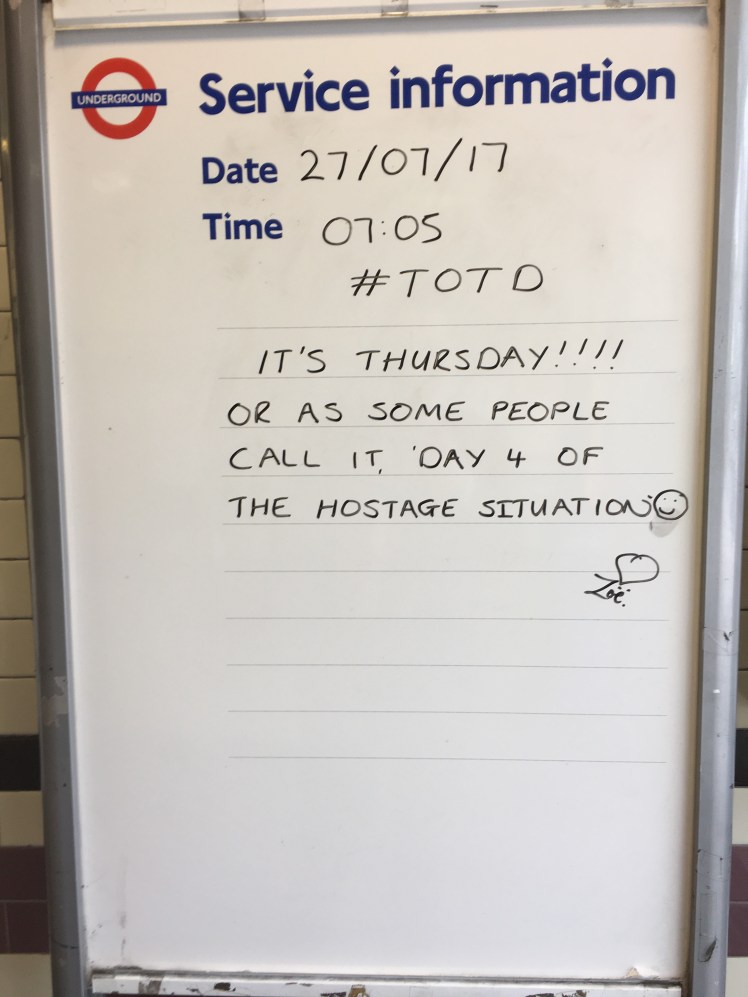 UNDERGROUND
Service information
Date 27/07/17
Time 07:05
#TOTD
IT'S THURSDAY!!!!
OR AS SOME PEOPLE
CALL IT, 'DAY 4 OF
THE HOSTAGE SITUATION' ☺
Zoë.